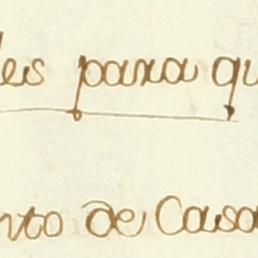 les para qu
nto de Casa